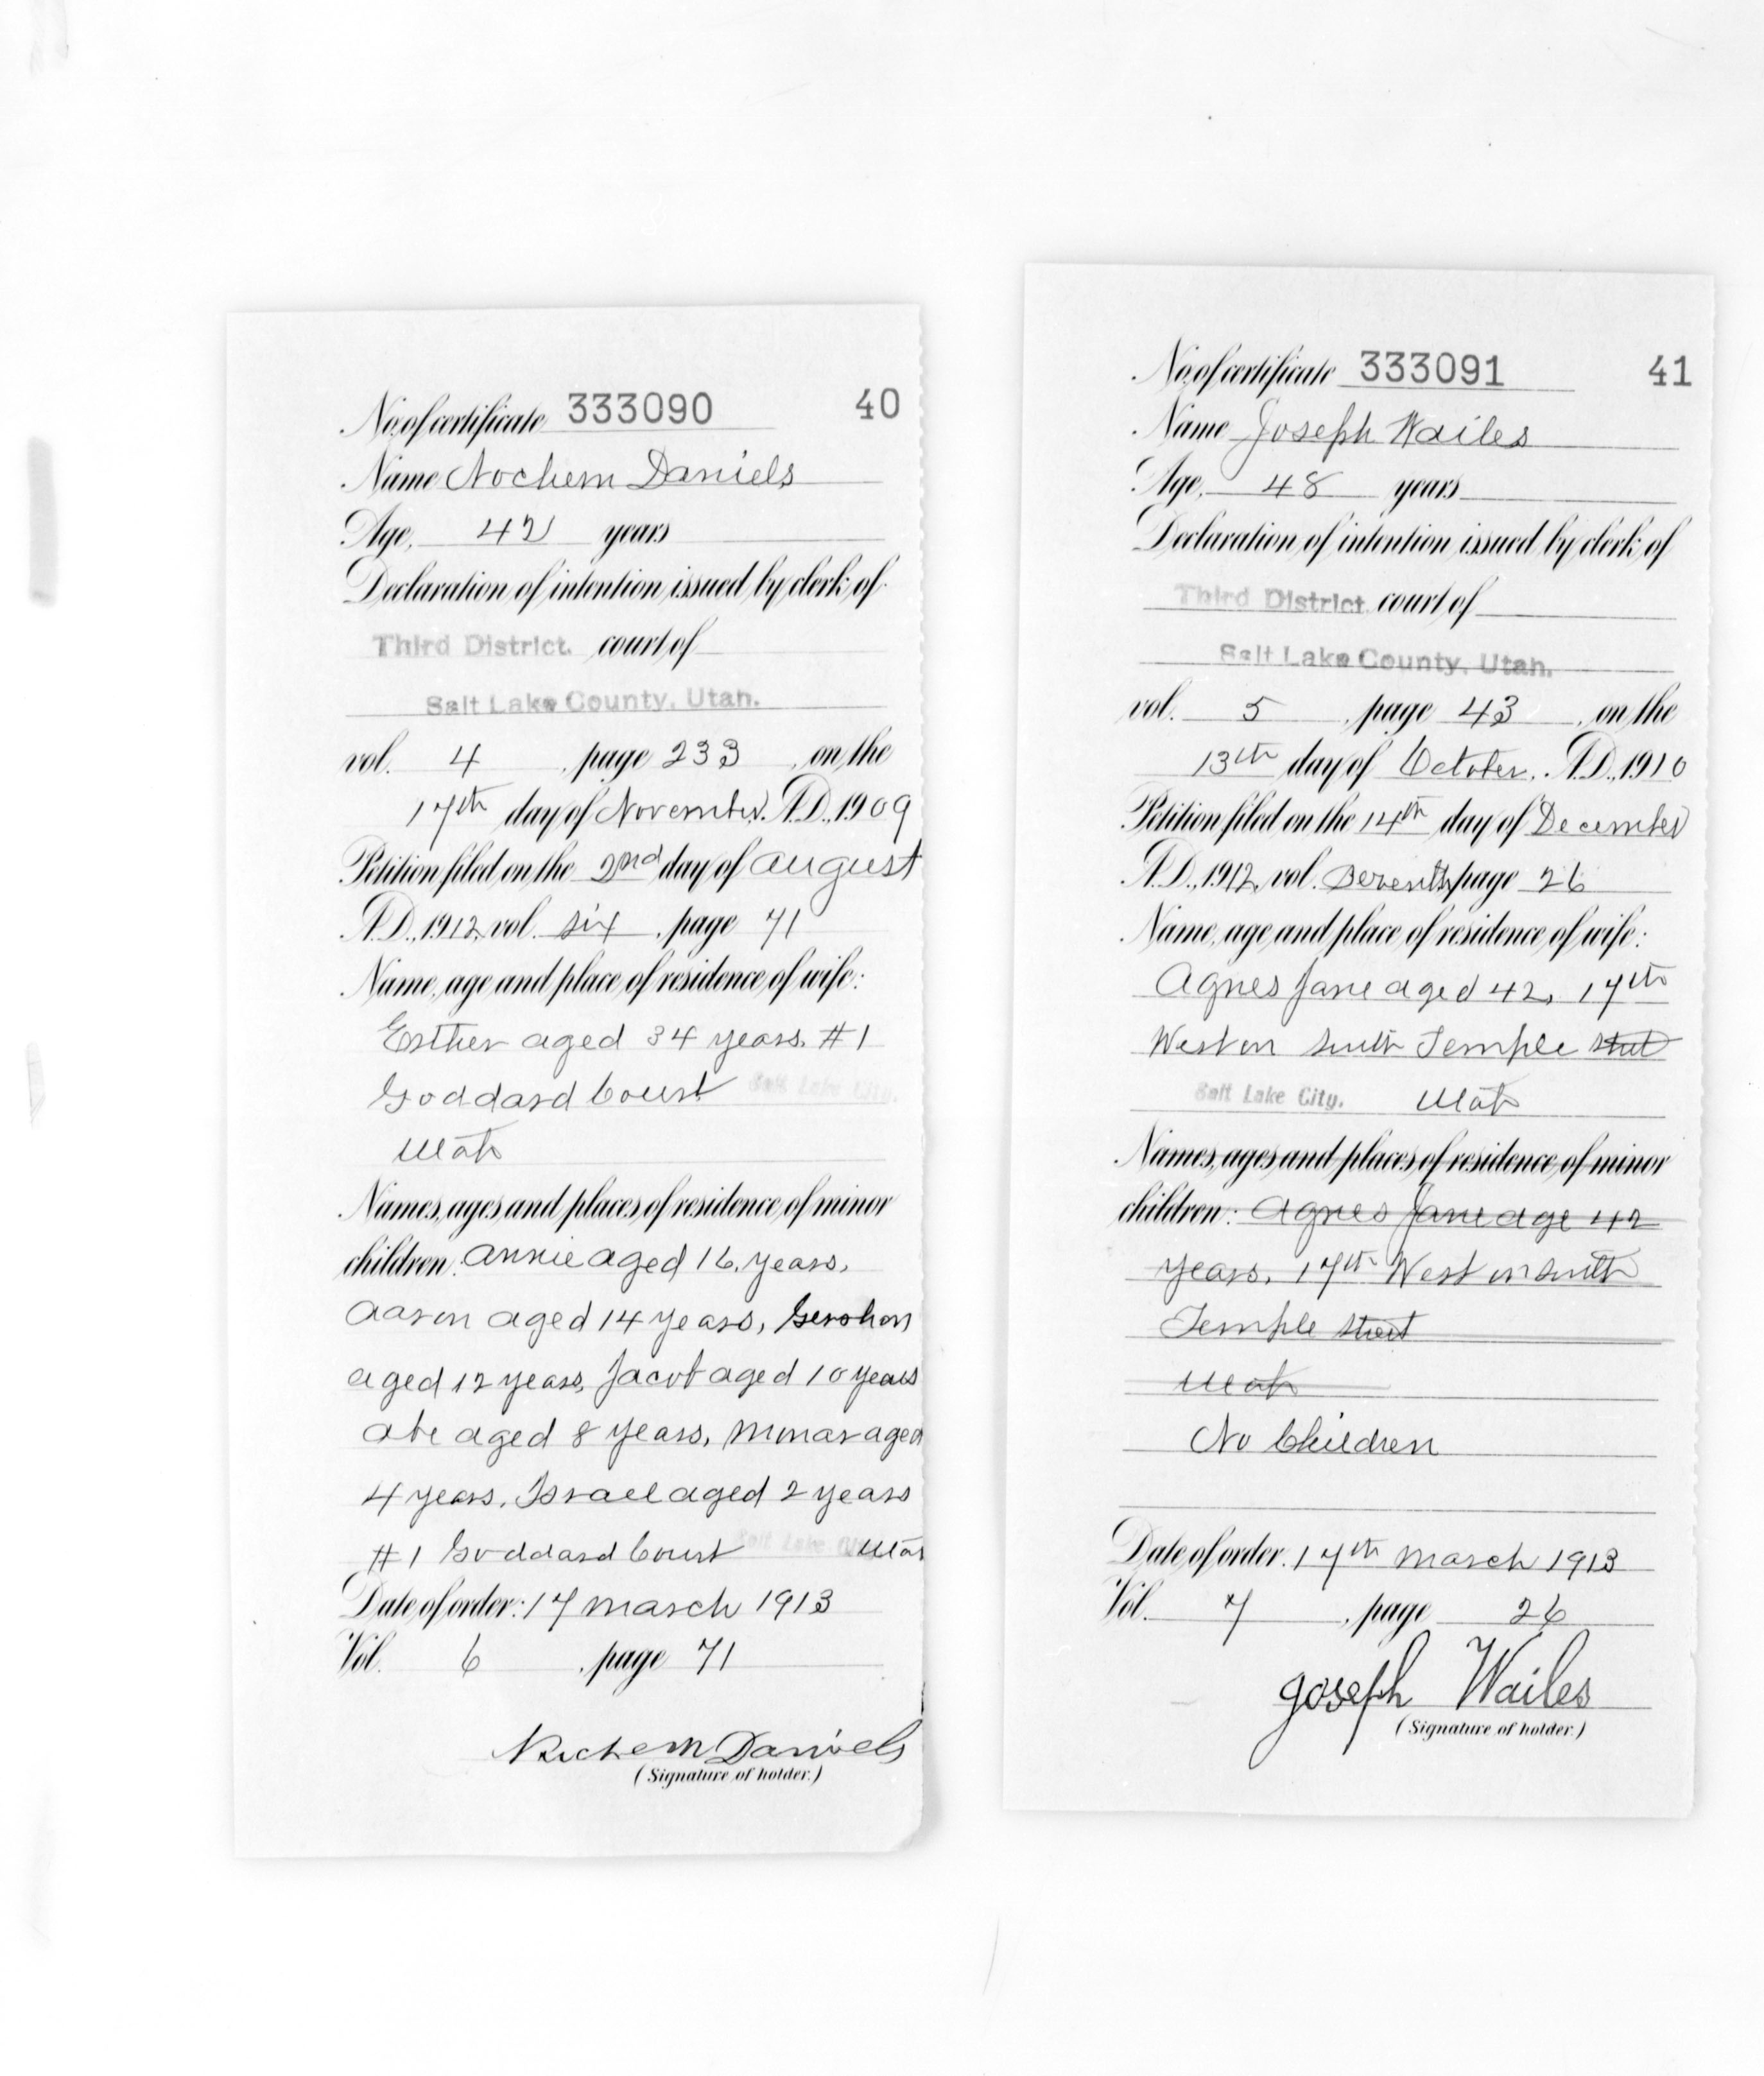 No. of certificate 333090 40
Name Nochem Daniels
Age, 42 years
Declaration of intention issued by clerk of
Third District. court of
Salt Lake County, Utah.
vol. 4, page 233, on the
17th day of November. A.D., 1909
Petition filed on the 2nd day of August
A.D., 1912, vol. six, page 71
Name, age and place of residence of wife:
Esther aged 34 years. #1
Goddard Court Salt Lake City.
Utah
Names, ages and places of residence of minor
children: Annie aged 16. years,
Aaron aged 14 years, Gershon
aged 12 years, Jacob aged 10 years
Abe aged 8 years, aged
4 years, Israel aged 2 years
#1 Goddard Court Salt Lake City Utah
Date of order: 17 March 1913
Vol. 6, page 71
Nochem Daniels
(Signature of holder.)
No. of certificate 333091 41
Name Joseph Wailes
Age, 48 years
Declaration of intention issued by clerk of
Third District. court of
Salt Lake County, Utah.
vol. 5, page 43, on the
13th day of October. A.D., 1910
Petition filed on the 14th day of December
A.D., 1912, vol. Seventh page 26
Name, age and place of residence of wife:
Agnes Jane aged 42, 17th
West on South Temple Street
Salt Lake City. Utah
Names, ages and places of residence of minor
children: Agnes Jane age 42
years, 17th West on South
Temple Street
Utah
No Children
Date of order: 17th March 1913
Vol. 7, page 26
Joseph Wailes
(Signature of holder.)